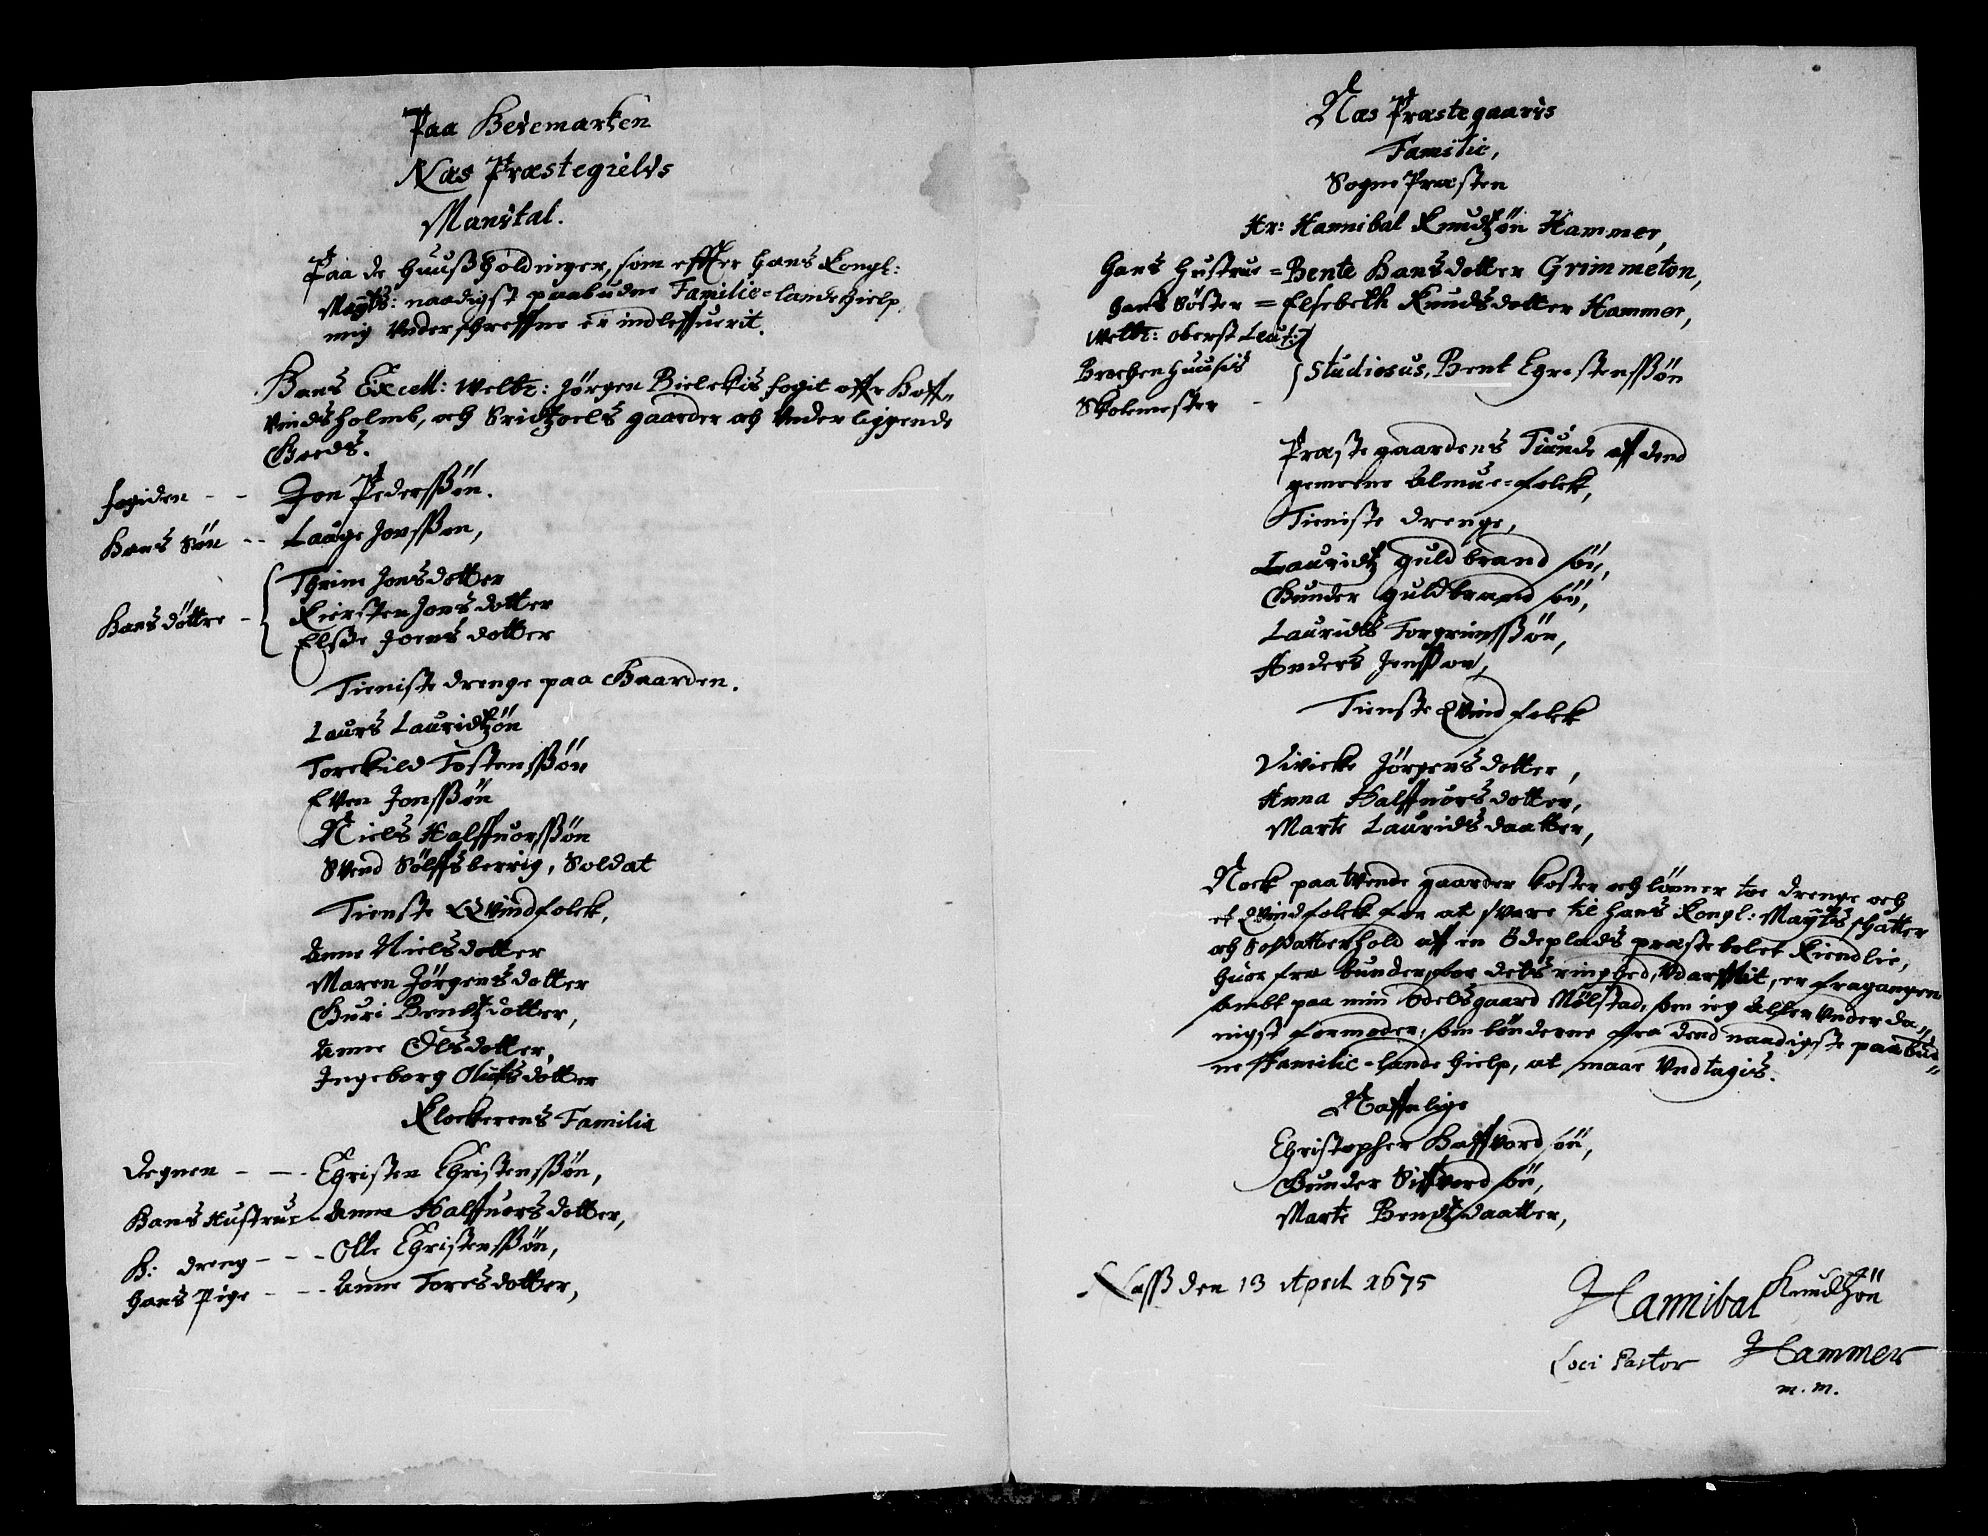 Paa Hedemarken
Næs Præstegields
Manstal.
Paa de Huussholdninger, som effter Hans Kongl:
Mayts: naadigst paabudne Familie-lande hielp,
mig underschreffne er indleffuerit.
Hans Excell: Welb: Jörgen Bielckis fogit offr Hoff
vindsholmb, och gaarder och underliggende
Goeds.
fogiden - - Jon Pederssön.
Hans Sön - - Lauge Jonssøn,
Thrine Jonsdotter
Hans döttre - Kiersten Jonsdotter
Elsse Joensdotter
Tieniste drenge paa Gaarden.
Laurs Lauridtzön
Torckild Tostenssön
Even Jonssön
Niels Halffuorssön
Svend Sölffsberrig, Soldat
Tienste Qvindfolck,
Anne Nielsdotter
Maren Jörgensdotter
Guri Bendtzdotter,
Anne Olsdotter,
Ingeborg Olufsdotter
Klockerens Familie
Degnen - - Christen Christenssön,
Hans Hustrue - Anne Halffuorsdotter,
H: dreng - - - Olle Christenssön,
Hans Pige - - - Anne Toresdotter,
Næs Præstegaards
Familie,
Sogne Præsten
Hr: Hannibal Knudtzön Hammer,
Hans Hustrue = Bente Hansdotter Grimmeton,
Hans Söster = Elsebeth Knudsdotter Hammer,
Welb: oberst Leut:
Brochenhuusis Studiosus, Bent Christenssön
Skolemester -
Præstegaardens Tiunde aff dend
gemeene Almue-folck,
Tieniste drenge,
Lauridtz Guldbrandsön,
Gunder Guldbrandsön,
Laurids Torgrimssön,
Anders Jenssøn,
Tienste Qvindfolck
Vivicke Jörgensdotter,
Anna Halffuorsdotter,
Marte Lauridsdaatter,
Nock paa tvende gaarder koster och lönner toe drenge och
et Qvindfolck for at svare til Hans Kongl: Mayts schatter
och Soldatterhold aff en Ödeplads præstebolet Kiendlie,
huor fra bunder for dets ringhed, er fragangen
sambt paa min Odelsgaard Mølstad, som ieg aller underda-
nigst formoder, som bönderne fra dend naadigste paabud
ne Familie-lande hielp, at maae undtagis.
Naffnlige
Christopher Haffvordsön,
Gunder Siffvordsön,
Marte Bendtzdaatter,
Næss den 13 April 1675
Hannibal Knudtzön
Loci Pastor Hammer
m. m.